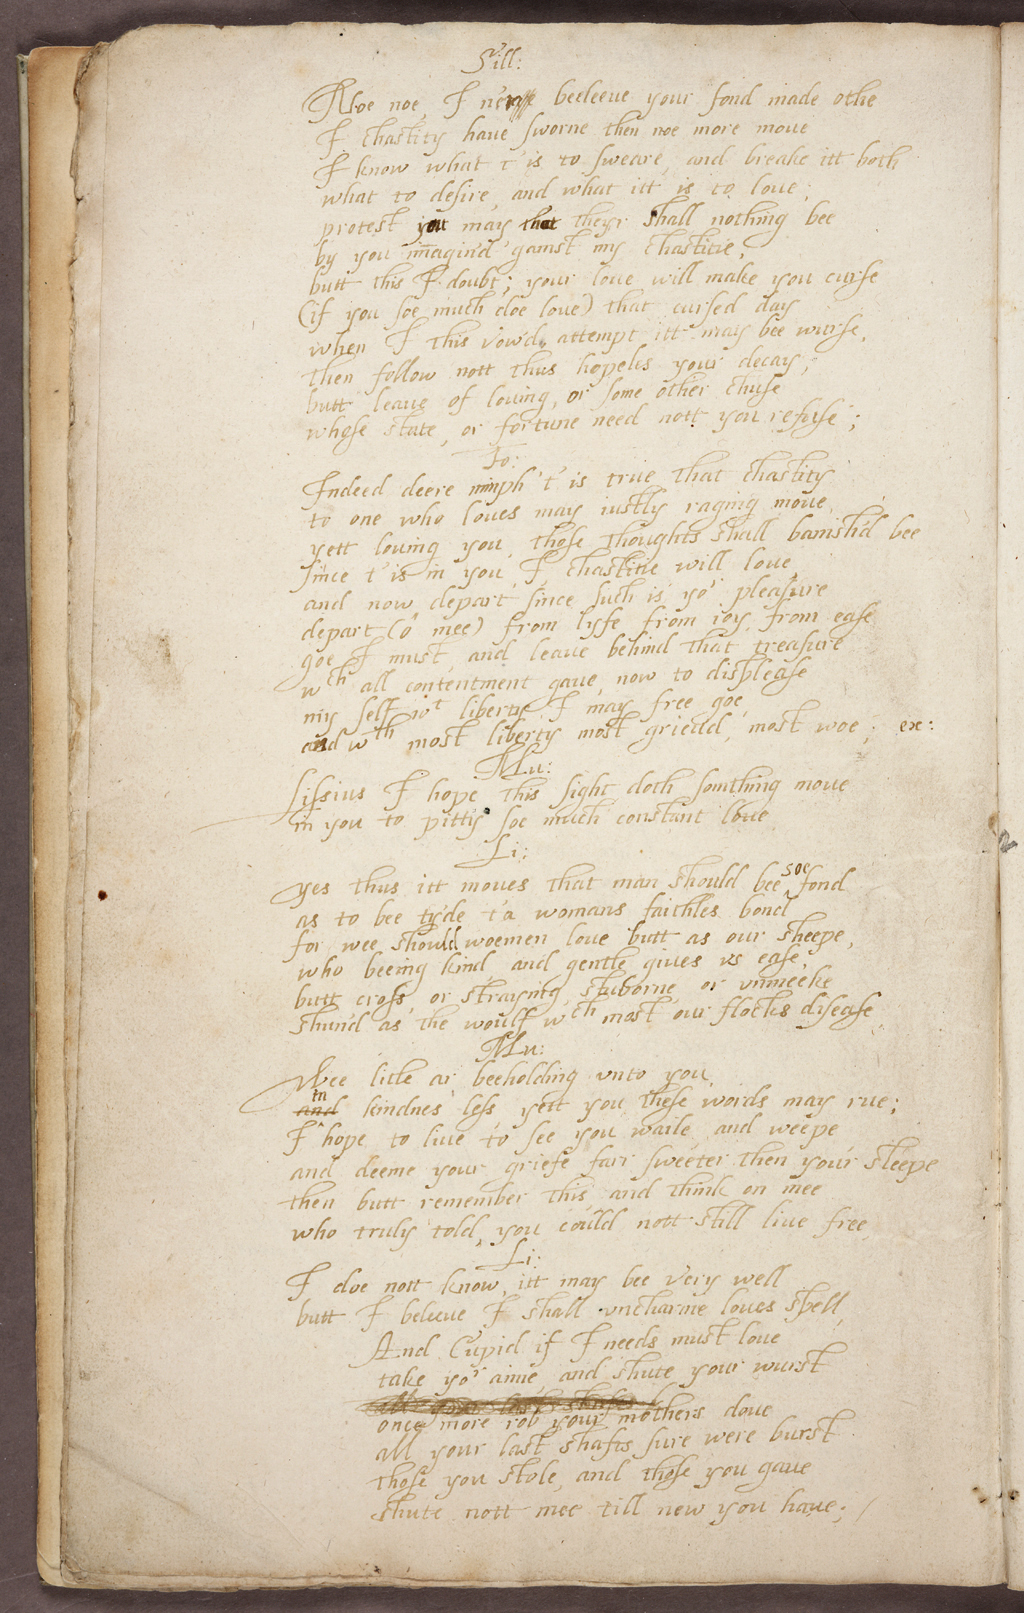 Sill:
Noe noe, I ne're beeleeve your fond made othe
I chastity have sworne then noe more move
I know what t'is to sweare, and breake itt both
what to desire, and what itt is to love;
protest you may that theyr shall nothing bee
by you imagin'd gainst my chastitie,
butt this I doubt; your love will make you curse
(if you soe much doe love) that cursed day
when I this vow'd, attempt itt may bee wurse,
then follow nott thus hopeles your decay;
butt leave of loving, or some other chuse
whose state, or fortune need nott you refuse;
Fo:
Indeed deere nimph t'is true that chastity
to one who loves may iustly raging move,
yett loving you, those thoughts shall banish'd bee
since t'is in you, I, chastitie will love,
and now depart since such is yor pleasure
depart (ô mee) from lyfe from ioy, from ease
goe I must, and leave behind that treasure
wch all contentment gave, now to displease
my self wt liberty I may free goe,
and wth most liberty most griev'd, most woe; ex:
Mu:
Lissius I hope this sight doth somthing move
in you to pitty soe much constant love
Li:
yes thus itt moves that man should bee soe fond
as to bee ty'de t'a womans faithles bond
for wee should woemen love butt as our sheepe,
who beeing kind, and gentle gives us ease,
butt cross, or straying, stuborne, or unmeeke
shun'd as the woulf wch most our flocks disease
Mu:
Wee litle ar beeholding unto you,
in
and kindnes less, yett you these words may rue;
I hope to live to see you waile, and weepe
and deeme your griefe farr sweeter then your sleepe
then butt remember this, and think on mee
who truly told, you could nott still live free,
Li:
I doe nott know, itt may bee very well
butt I beleeve I shall uncharme loves spell,
And Cupid if I needs must love
take yor aime, and shute your wurst
once more rob your mothers dove
all your last shafts sure were burst
those you stole, and those you gave
shute nott mee till new you have;